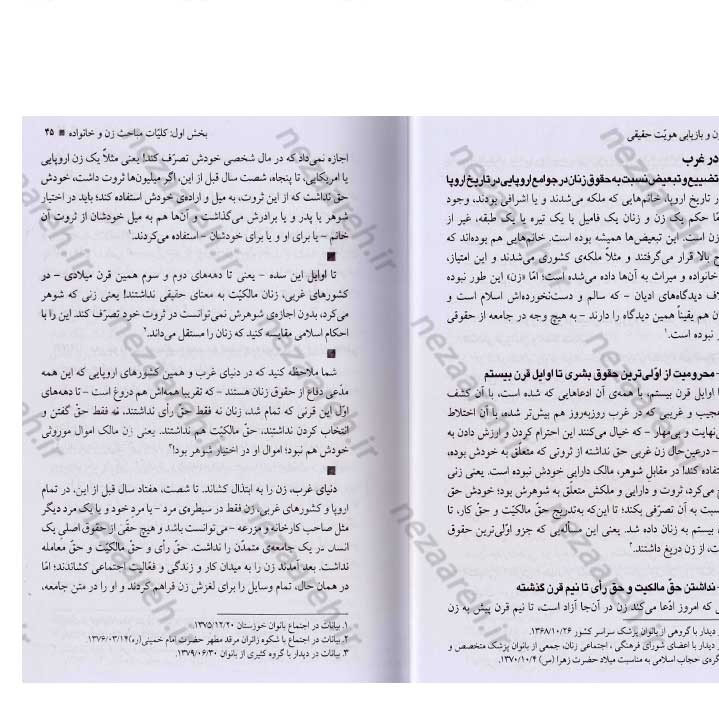 ن و بازیابی هویّت حقیقی
در غرب
تضییع و تبعیض نسبت به حقوق زنان در جوامع اروپایی در تاریخ اروپا
ر تاریخ اروپا، خانم‌هایی که ملکه می‌شدند و یا اشرافی بودند، وجود
مّا حکم یک زن و زنان یک فامیل یا یک تیره یا یک طبقه، غیر از
زن است. این تبعیض‌ها همیشه بوده است. خانم‌هایی هم بوده‌اند که
ح بالا قرار می‌گرفتند و مثلاً ملکه‌ی کشوری می‌شدند و این امتیاز،
خانواده و میراث به آن‌ها داده می‌شده است؛ امّا «زن» این طور نبوده
لاف دیدگاه‌های ادیان - که سالم و دست‌نخورده‌اش اسلام است و
ن هم یقیناً همین دیدگاه را دارند - به هیچ وجه در جامعه از حقوقی
ر نبوده است.۱
- محرومیت از اوّلی‌ترین حقوق بشری تا اوایل قرن بیستم
ا اوایل قرن بیستم، با همه‌ی آن ادعاهایی که شده است، با آن کشف
عجیب و غریبی که در غرب روزبه‌روز هم بیش‌تر شده، با آن اختلاط
ی‌نهایت و بی‌مهار - که خیال می‌کنند این احترام کردن و ارزش دادن به
- درعین‌حال زن غربی حق نداشته از ثروتی که متعلّق به خودش بوده،
تفاده کند! در مقابل شوهر، مالک دارایی خودش نبوده است. یعنی زنی
ج می‌کرد، ثروت و دارایی و ملکش متعلّق به شوهرش بود؛ خودش حق
سبت به آن تصرّفی بکند؛ تا این‌که به‌تدریج حقّ مالکیّت و حقّ کار، تا
ن بیستم به زنان داده شد. یعنی این مسأله‌یی که جزو اوّلی‌ترین حقوق
ت، از زن دریغ داشتند.۲
- نداشتن حقّ مالکیت و حق رأی تا نیم قرن گذشته
ی که امروز ادّعا می‌کند زن در آن‌جا آزاد است، تا نیم قرن پیش به زن
دیدار با گروهی از بانوان پزشک سراسر کشور ۱۳۶۸/۱۰/۲۶.
دیدار با اعضای شورای فرهنگی ، اجتماعی زنان، جمعی از بانوان پزشک متخصص و
گره‌ی حجاب اسلامی به مناسبت میلاد حضرت زهرا (س) ۱۳۷۰/۱۰/۴.
بخش اول: کلیّات مباحث زن و خانواده ■ ۴۵
اجازه نمی‌داد که در مال شخصی خودش تصرّف کند! یعنی مثلاً یک زن اروپایی
یا امریکایی، تا پنجاه، شصت سال قبل از این، اگر میلیون‌ها ثروت داشت، خودش
حق نداشت که از این ثروت، به میل و اراده‌ی خودش استفاده کند؛ باید در اختیار
شوهر یا پدر و یا برادرش می‌گذاشت و آن‌ها هم به میل خودشان از ثروت آن
خانم - یا برای او و یا برای خودشان - استفاده می‌کردند.۱
تا اوایل این سده - یعنی تا دهه‌های دوم و سوم همین قرن میلادی - در
کشورهای غربی، زنان مالکیّت به معنای حقیقی نداشتند! یعنی زنی که شوهر
می‌کرد، بدون اجازه‌ی شوهرش نمی‌توانست در ثروت خود تصرّف کند. این را با
احکام اسلامی مقایسه کنید که زنان را مستقل می‌داند.۲
شما ملاحظه کنید که در دنیای غرب و همین کشورهای اروپایی که این همه
مدّعی دفاع از حقوق زنان هستند - که تقریبا همه‌اش هم دروغ است - تا دهه‌های
اوّل این قرنی که تمام شد، زنان نه فقط حقّ رأی نداشتند، نه فقط حقّ گفتن و
انتخاب کردن نداشتند، حقّ مالکیّت هم نداشتند. یعنی زن مالک اموال موروثی
خودش هم نبود؛ اموال او در اختیار شوهر بود!۳
دنیای غرب، زن را به ابتذال کشاند. تا شصت، هفتاد سال قبل از این، در تمام
اروپا و کشورهای غربی، زن فقط در سیطره‌ی مرد - یا مردِ خود و یا یک مرد دیگر
مثل صاحب کارخانه و مزرعه - می‌توانست باشد و هیچ حقّی از حقوق اصلی یک
انسان در یک جامعه‌ی متمدّن را نداشت. حقّ رأی و حقّ مالکیّت و حقّ معامله
نداشت. بعد آمدند زن را به میدان کار و زندگی و فعّالیت اجتماعی کشاندند؛ امّا
در همان حال، تمام وسایل را برای لغزش زن فراهم کردند و او را در متن جامعه،
۱. بیانات در اجتماع بانوان خوزستان ۱۳۷۵/۱۲/۲۰.
۲. بیانات در اجتماع با شکوه زائران مرقد مطهر حضرت امام خمینی(ره) ۱۳۷۶/۰۳/۱۴.
۳. بیانات در دیدار با گروه کثیری از بانوان ۱۳۷۹/۰۶/۳۰.
nezaareh.ir